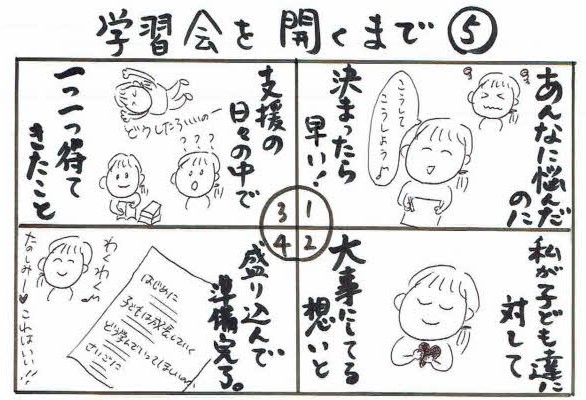 学習会を開くまで⑤
あんなに悩んだ
のに
こうして
こうしよう♪
決まったら
早い!
1
私が子ども達に
対して
大事にしてる
想いと
2
支援の
日々の中で
どうしたらいいの〜
???
一つ一つ得て
きたこと
3
盛り込んで
準備完了。
はじめに
子どもは成長していく
どう学んでいってほしいのか
さいごに
わくわく♪
たのしみー♥
これはいい!!
4